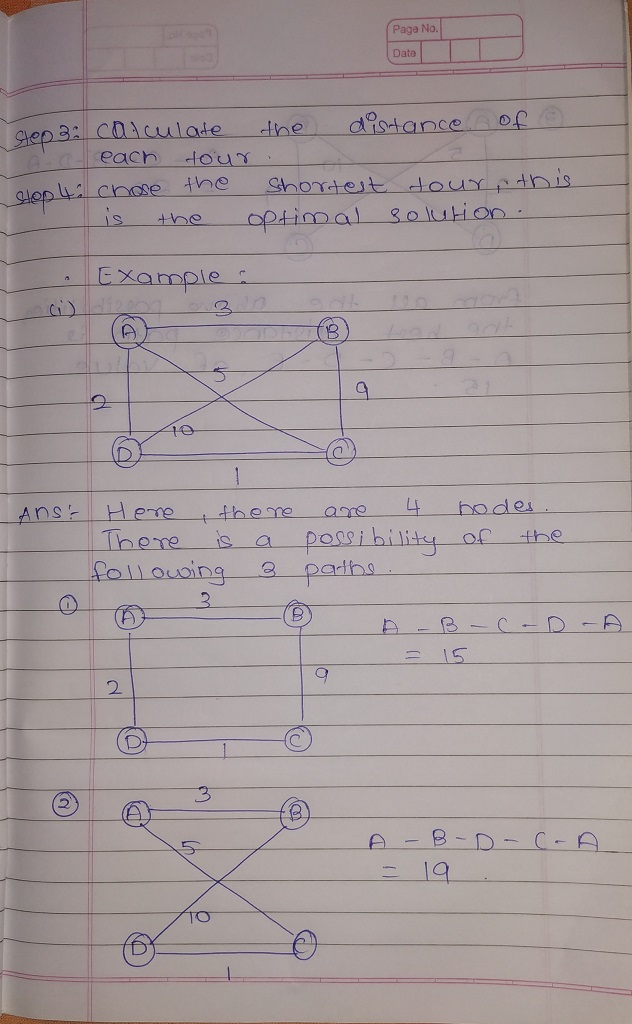 Page No.
Date
Step 3: calculate the distance of
each tour.
Step 4: chose the shortest tour, this
is the optimal solution.
. Example :
(i)
3
A B
5
2 9
10
D C
1
Ans:- Here, there are 4 nodes.
There is a possibility of the
following 3 paths.
① 3
A B A - B - C - D - A
= 15
2 9
D 1 C
② 3
A B
5 A - B - D - C - A
= 19.
10
D C
1